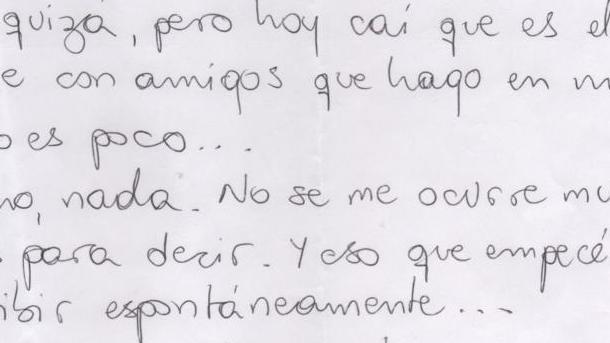 quizá, pero hoy caí que es el
e con amigos que hago en m
o es poco...
no, nada. No se me ocurre mu
para decir. Y eso que empecé
ibir espontáneamente...